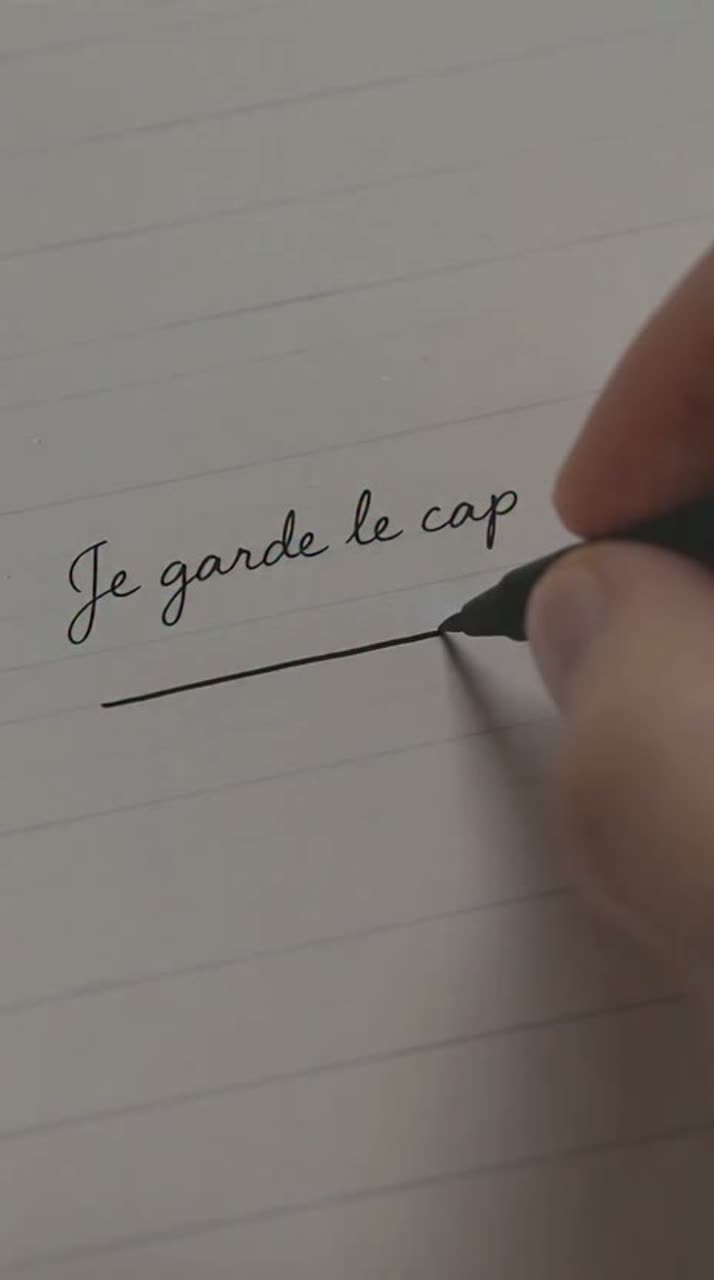 Je garde le cap